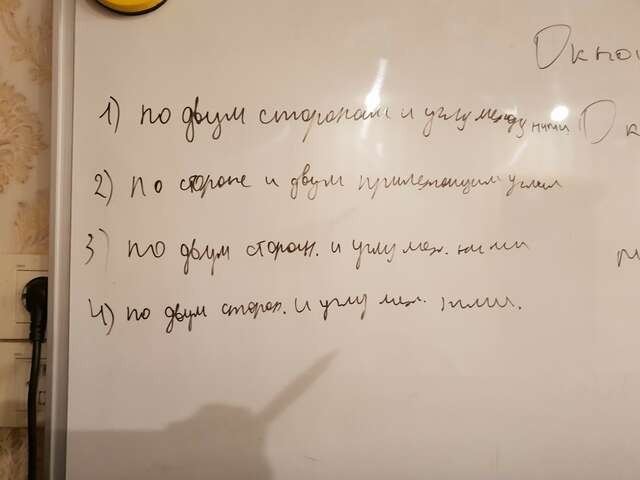 Окно
1) по двум сторонам и углу между ними
2) по стороне и двум прилежащим углам
3) по двум сторон. и углу меж. ними
4) по двум сторон. и углу меж. ними.